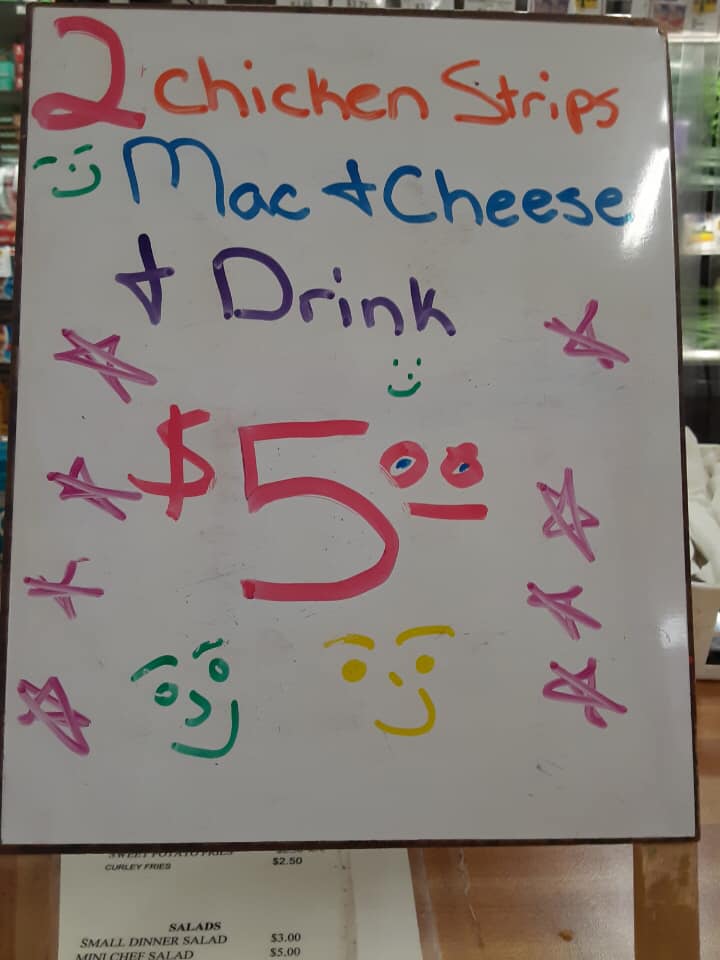 2 chicken Strips
Mac + Cheese
+ Drink
$5.00
SWEET POTATO FRIES
CURLEY FRIES $2.50
SALADS
SMALL DINNER SALAD $3.00
MINI CHEF SALAD $5.00